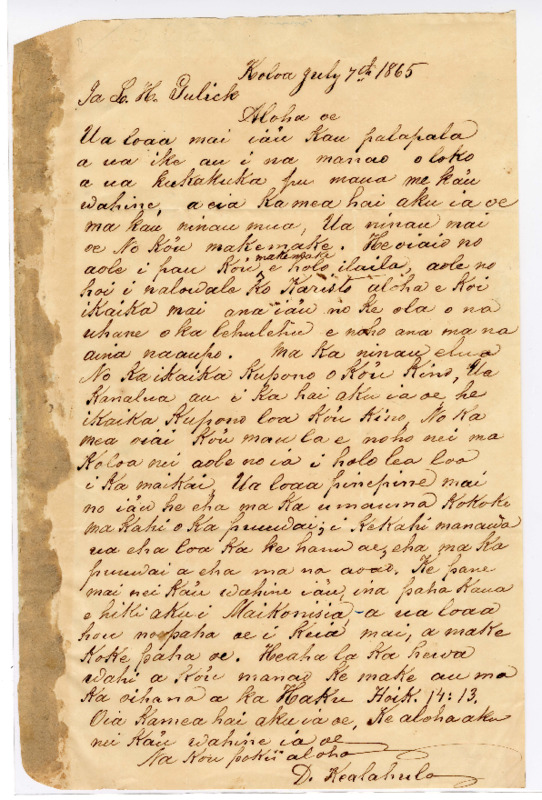 Koloa July 7th 1865
Ia L. H. Gulick
Aloha oe
Ua loaa mai ia'u Kau palapala
a ua ike au i na manao oloko
a ua kukakuka pu maua me ka'u
wahine, a eia Ka mea hai aku ia oe
ma kau ninau mua, Ua ninau mai
oe No Ko'u makemake. He oiaio no
aole i pau Ko'u makemake e holo ilaila, aole no
hoi i nalowale Ko Karisto aloha e Koi
ikaika mai ana ia'u no ke ola o na
uhane o ka lehulehu e noho ana ma na
aina naaupo. Ma Ka ninau elua
No Ka ikaika Kupono o Ko'u Kino, Ua
Kanalua au i Ka hai aku ia oe, he
ikaika Kupono loa Ko'u Kino, No Ka
mea oiai Ko'u mau la e noho nei ma
Koloa nei aole no ia i holo lea loa
i Ka maikai, Ua loaa pinepine mai
no ia'u he eha ma Ka umauma Kokoke
ma Kahi o Ka puuwai; i Kekahi manawa
ua eha loa Ka ke hanu ae, eha ma Ka
puuwai a eha ma na aoao. Ke pane
mai nei Ka'u wahine ia'u, ina paha Kaua
e hiki aku i Maikonisia, a ua loaa
hou no paha oe i Keia mai, a make
Koke paha oe. Heaha la Ka hewa
wahi a Ko'u manao Ke make au ma
Ka oihana a ka Haku Hoik. 14:13.
Oia Kamea hai aku ia oe, Ke aloha aku
nei Ka'u wahine ia oe
Na Kou pokii aloha
D. Kealahula